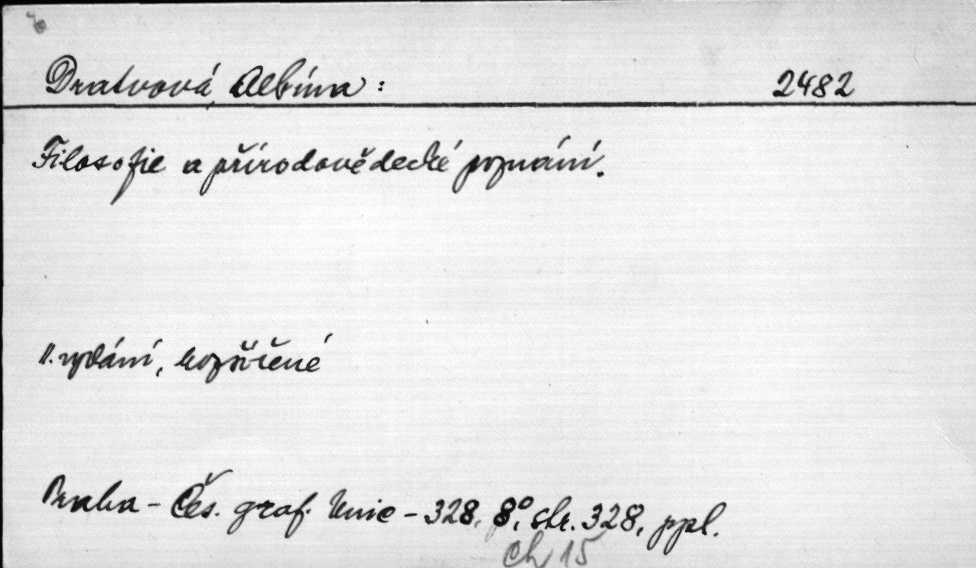 Dratvová, Albína: 2482
Filosofie a přírodovědecké poznání.
II. vydání, rozšířené
Praha - Čes. graf. Unie - 328, 8°, str. 328, ppl.
Ch 15